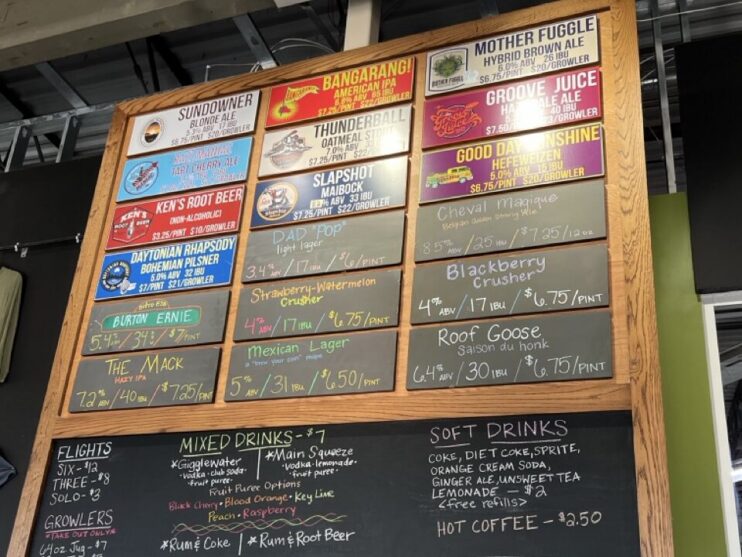 SUNDOWNER
BLONDE ALE
5.3% ABV 17 IBU
$6.75/PINT $20/GROWLER
TART CHERRY ALE
KEN'S ROOT BEER
(NON-ALCOHOLIC)
$3.25/PINT $10/GROWLER
DAYTONIAN RHAPSODY
BOHEMIAN PILSNER
5.0% ABV 32 IBU
$7/PINT $21/GROWLER
BURTON ERNIE
5.4% ABV / 34 / $7/PINT
THE MACK
HAZY IPA
7.2% ABV / 40 IBU / $7.25/PINT
BANGARANG!
AMERICAN IPA
65 IBU
$7.25/PINT $22/GROWLER
THUNDERBALL
OATMEAL STOUT
$7.25/PINT $22/GROWLER
SLAPSHOT
MAIBOCK
33 IBU
$7.25/PINT $22/GROWLER
DAD "POP"
light lager
3.4% ABV / 17 IBU / $6/PINT
Strawberry-Watermelon
Crusher
4% ABV / 17 IBU / $6.75/PINT
Mexican Lager
5% ABV / 31 IBU / $6.50/PINT
MOTHER FUGGLE
HYBRID BROWN ALE
6.0% ABV 26 IBU
$6.75/PINT $20/GROWLER
MOTHER FUGGLE
GROOVE JUICE
ALE
$7.50 GROWLER
GOOD DAY SUNSHINE
HEFEWEIZEN
5.0% ABV
$6.75/PINT $20/GROWLER
Cheval Magique
Belgian Golden Strong Ale
8.5% ABV / 25 IBU / $7.25/12oz
Blackberry
Crusher
4% ABV / 17 IBU / $6.75/PINT
Roof Goose
saison du honk
6.4% ABV / 30 IBU / $6.75/PINT
FLIGHTS
SIX - $12
THREE - $8
SOLO - $3
GROWLERS
*TAKE OUT ONLY*
64oz Jug - $7
MIXED DRINKS - $7
*Gigglewater
-vodka-club soda-
fruit puree-
*Main Squeeze
-vodka-lemonade-
fruit puree-
Fruit Puree Options
Black Cherry - Blood Orange - Key Lime
Peach - Raspberry
*Rum & Coke *Rum & Root Beer
SOFT DRINKS
COKE, DIET COKE, SPRITE,
ORANGE CREAM SODA,
GINGER ALE, UNSWEET TEA
LEMONADE - $2
<free refills>
HOT COFFEE - $2.50